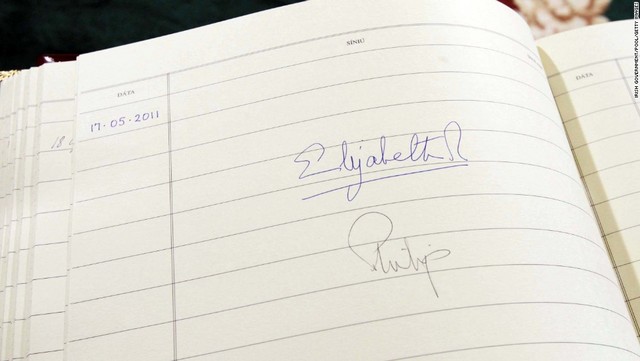 SÍNIÚ
DÁTA
17·05·2011
Elizabeth R
Philip
DÁTA
18
IRISH GOVERNMENT/POOL/GETTY IMAGES